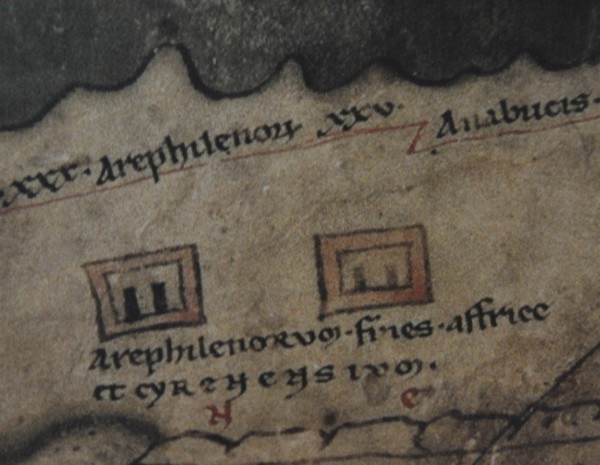 xxx· Arephilenorꝝ xxv· Anabucis·
Arephilenorvm·fines·affrice
et cyrenensivm·
N e